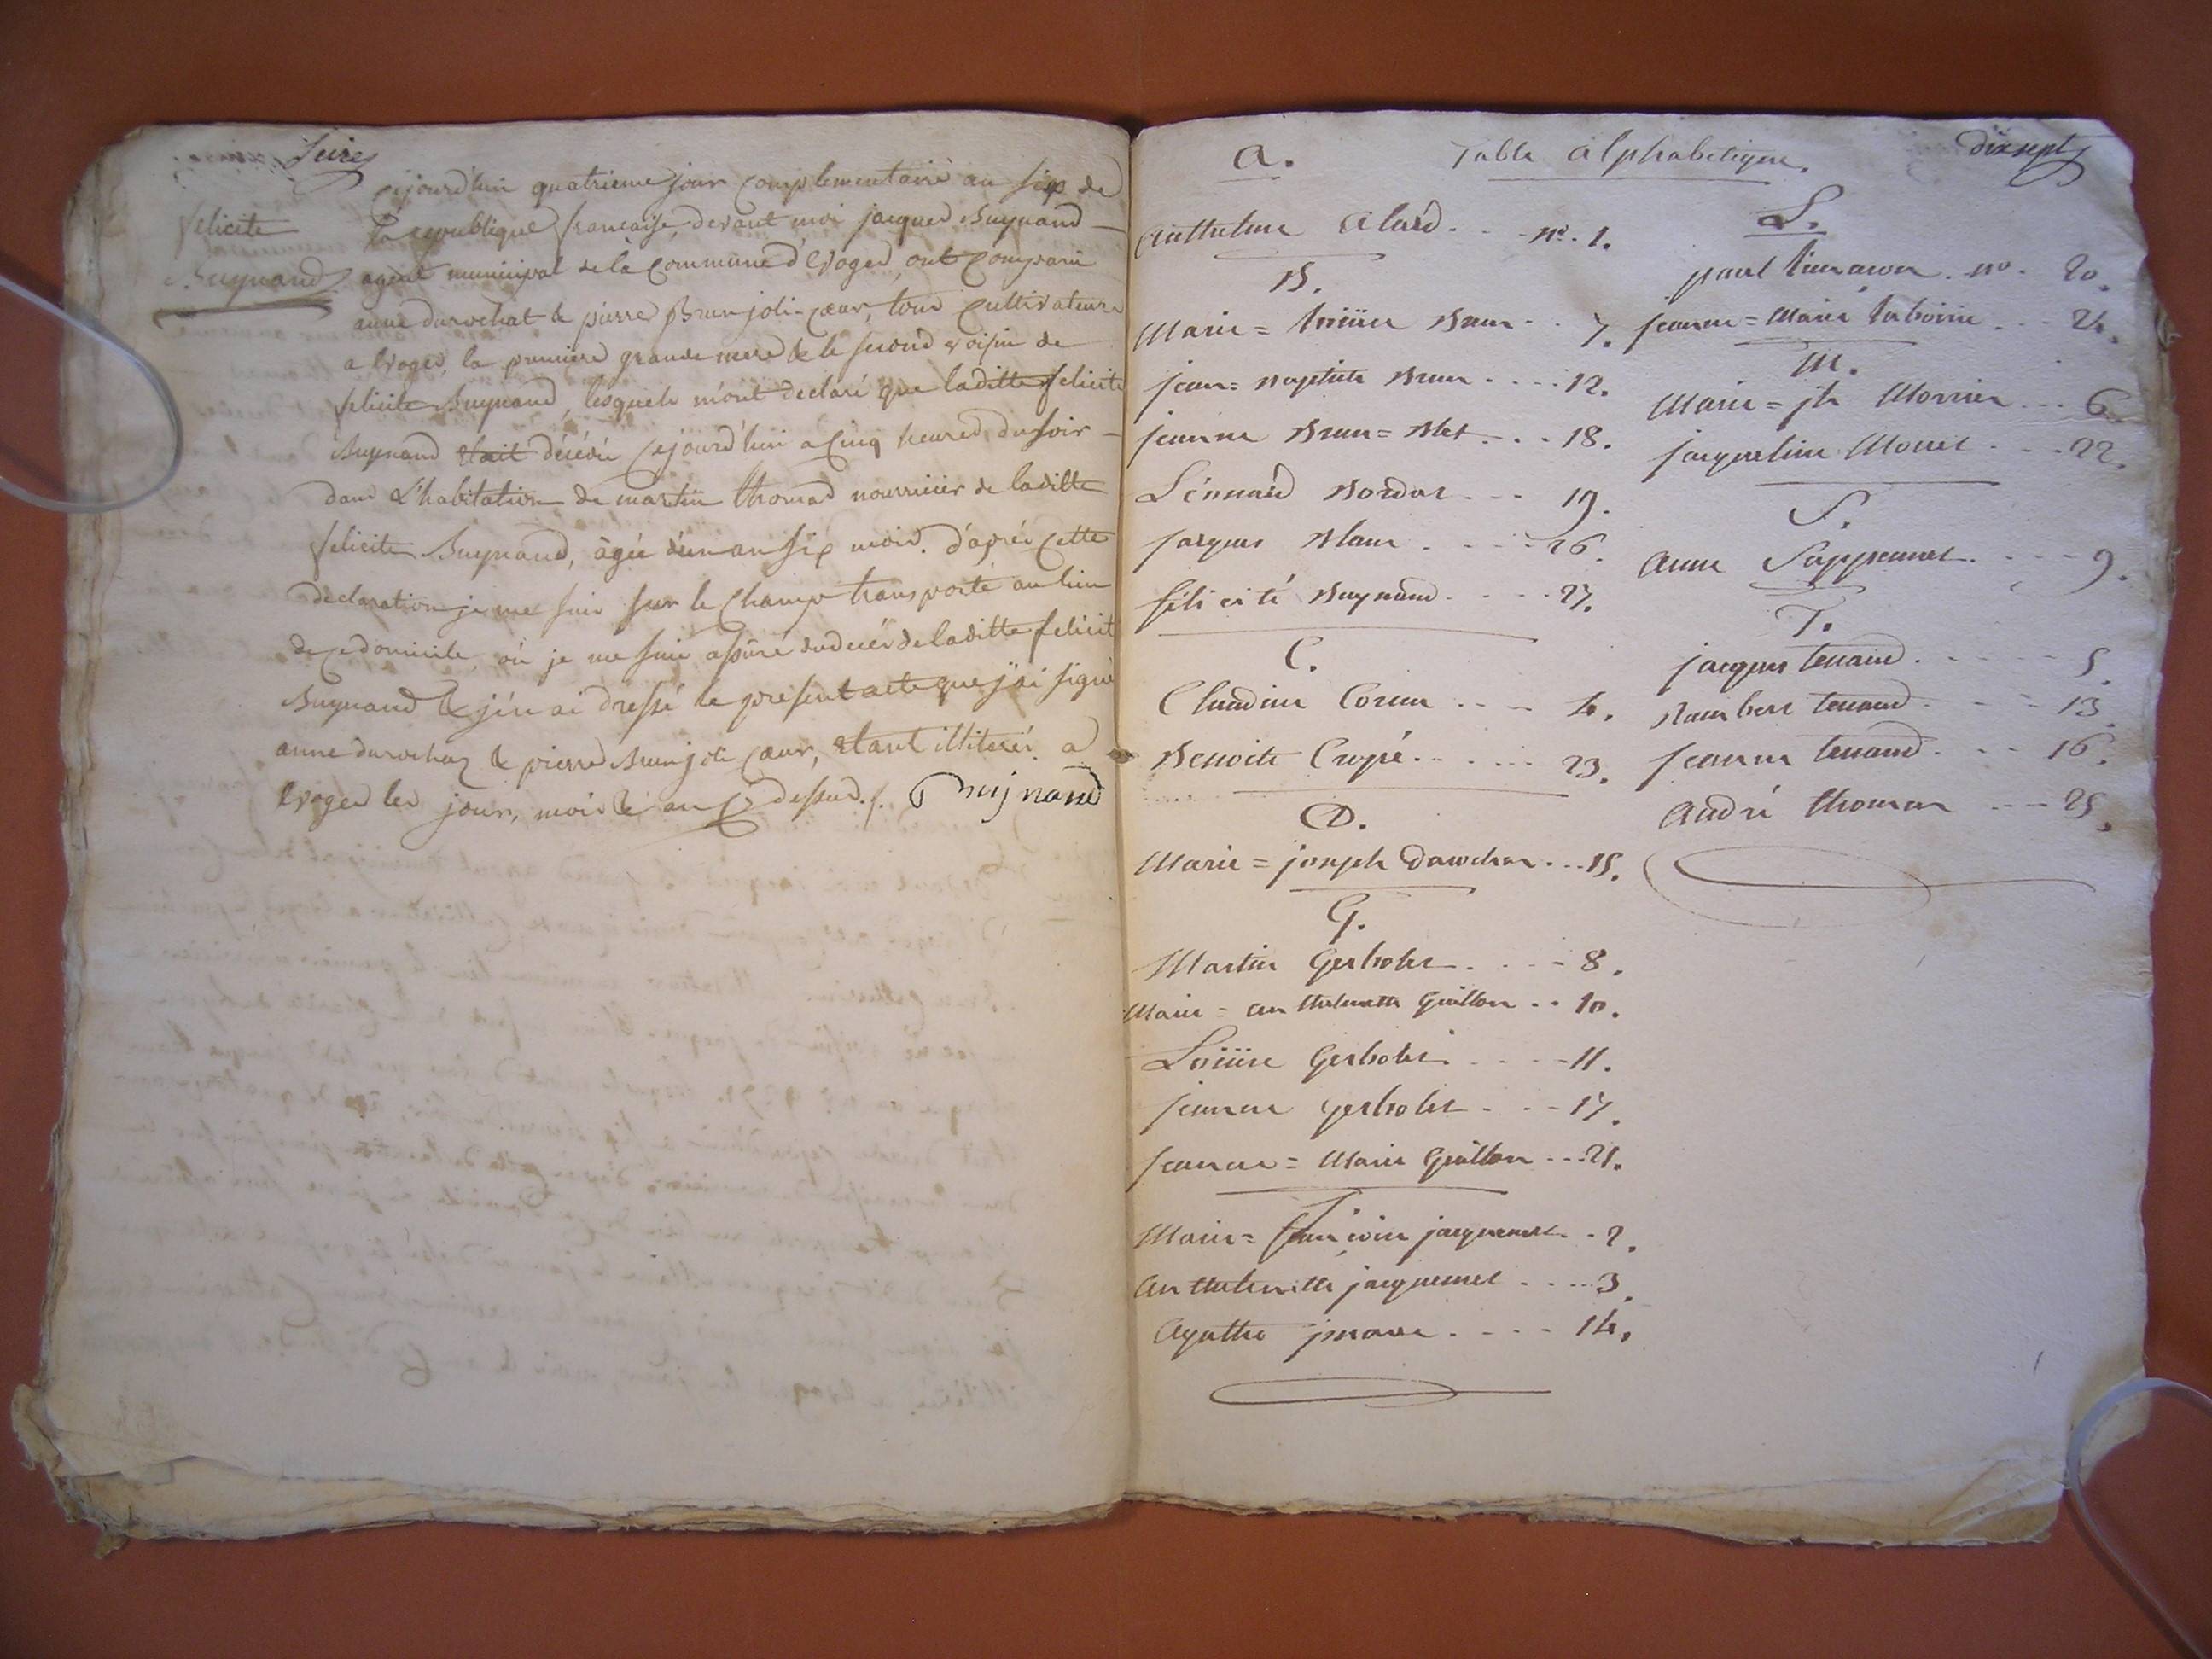 Seize
felicite
Buynand
Cejourd'hui quatrieme jour complementaire an six de
la republique francaise, devant moi jacques Buynand
agent municipal de la commune d'Evoges, ont comparu
anne durochat & pierre Brun joli-coeur, tous cultivateurs
a Evoges, la premiere grande mere & le second voisin de
felicite Buynand, lesquels m'ont declaré que laditte felicite
Buynand etait décédée cejourd'hui a cinq heures du soir
dans L'habitation de martin thomas nourricier de laditte
felicite Buynand, âgée d'un an six mois. d'après cette
declaration je me suis sur le champ transporté au lieu
de ce domicile, où je me suis assuré du decès de laditte felicite
Buynand & j'en ai dressé le present acte que j'ai signé
anne durochat & pierre Brun joli coeur, etant illiterés. a
Evoges les jour, mois & an Cy dessus./. Buynand
dixsept
Table alphabetique.
a.
Anthelme Alard. - - n°. 1.
B.
Marie = Loüise Brun - . 7.
jean = Baptiste Brun . . . . 12.
jeanne Brun = Blet . . . 18.
Léonard Bordat . . . 19.
jacques Blanc . . . . 26.
félicité Buynand . . . . 27.
C.
Claudine Corun . . . . 4.
Benoite Crepié . . . . . 23.
D.
Marie = joseph Durochat . . . 15.
G.
Martin Gerbolet . . . . 8.
Marie = anthelmette Guillon . . 10.
Loüise Gerbolet . . . . 11.
jeanne Gerbolet . . . 17.
jeanne = Marie Guillon . . . 21.
j.
Marie = françoise jacquemet . . 2.
anthelmette jacquemet . . . . 3.
Agathe . . . . 14.
L.
paul . n°. 20.
jeanne = Marie . . . 24.
M.
Marie = jh Monnier . . . 6.
jacqueline Monet . . . 22.
S.
anne Suppemet . . . . 9.
T.
jacques tenand . . . . . 5.
Rambert tenand . . . . 13.
jeanne tenand . . . 16.
André thomas . . . 25.